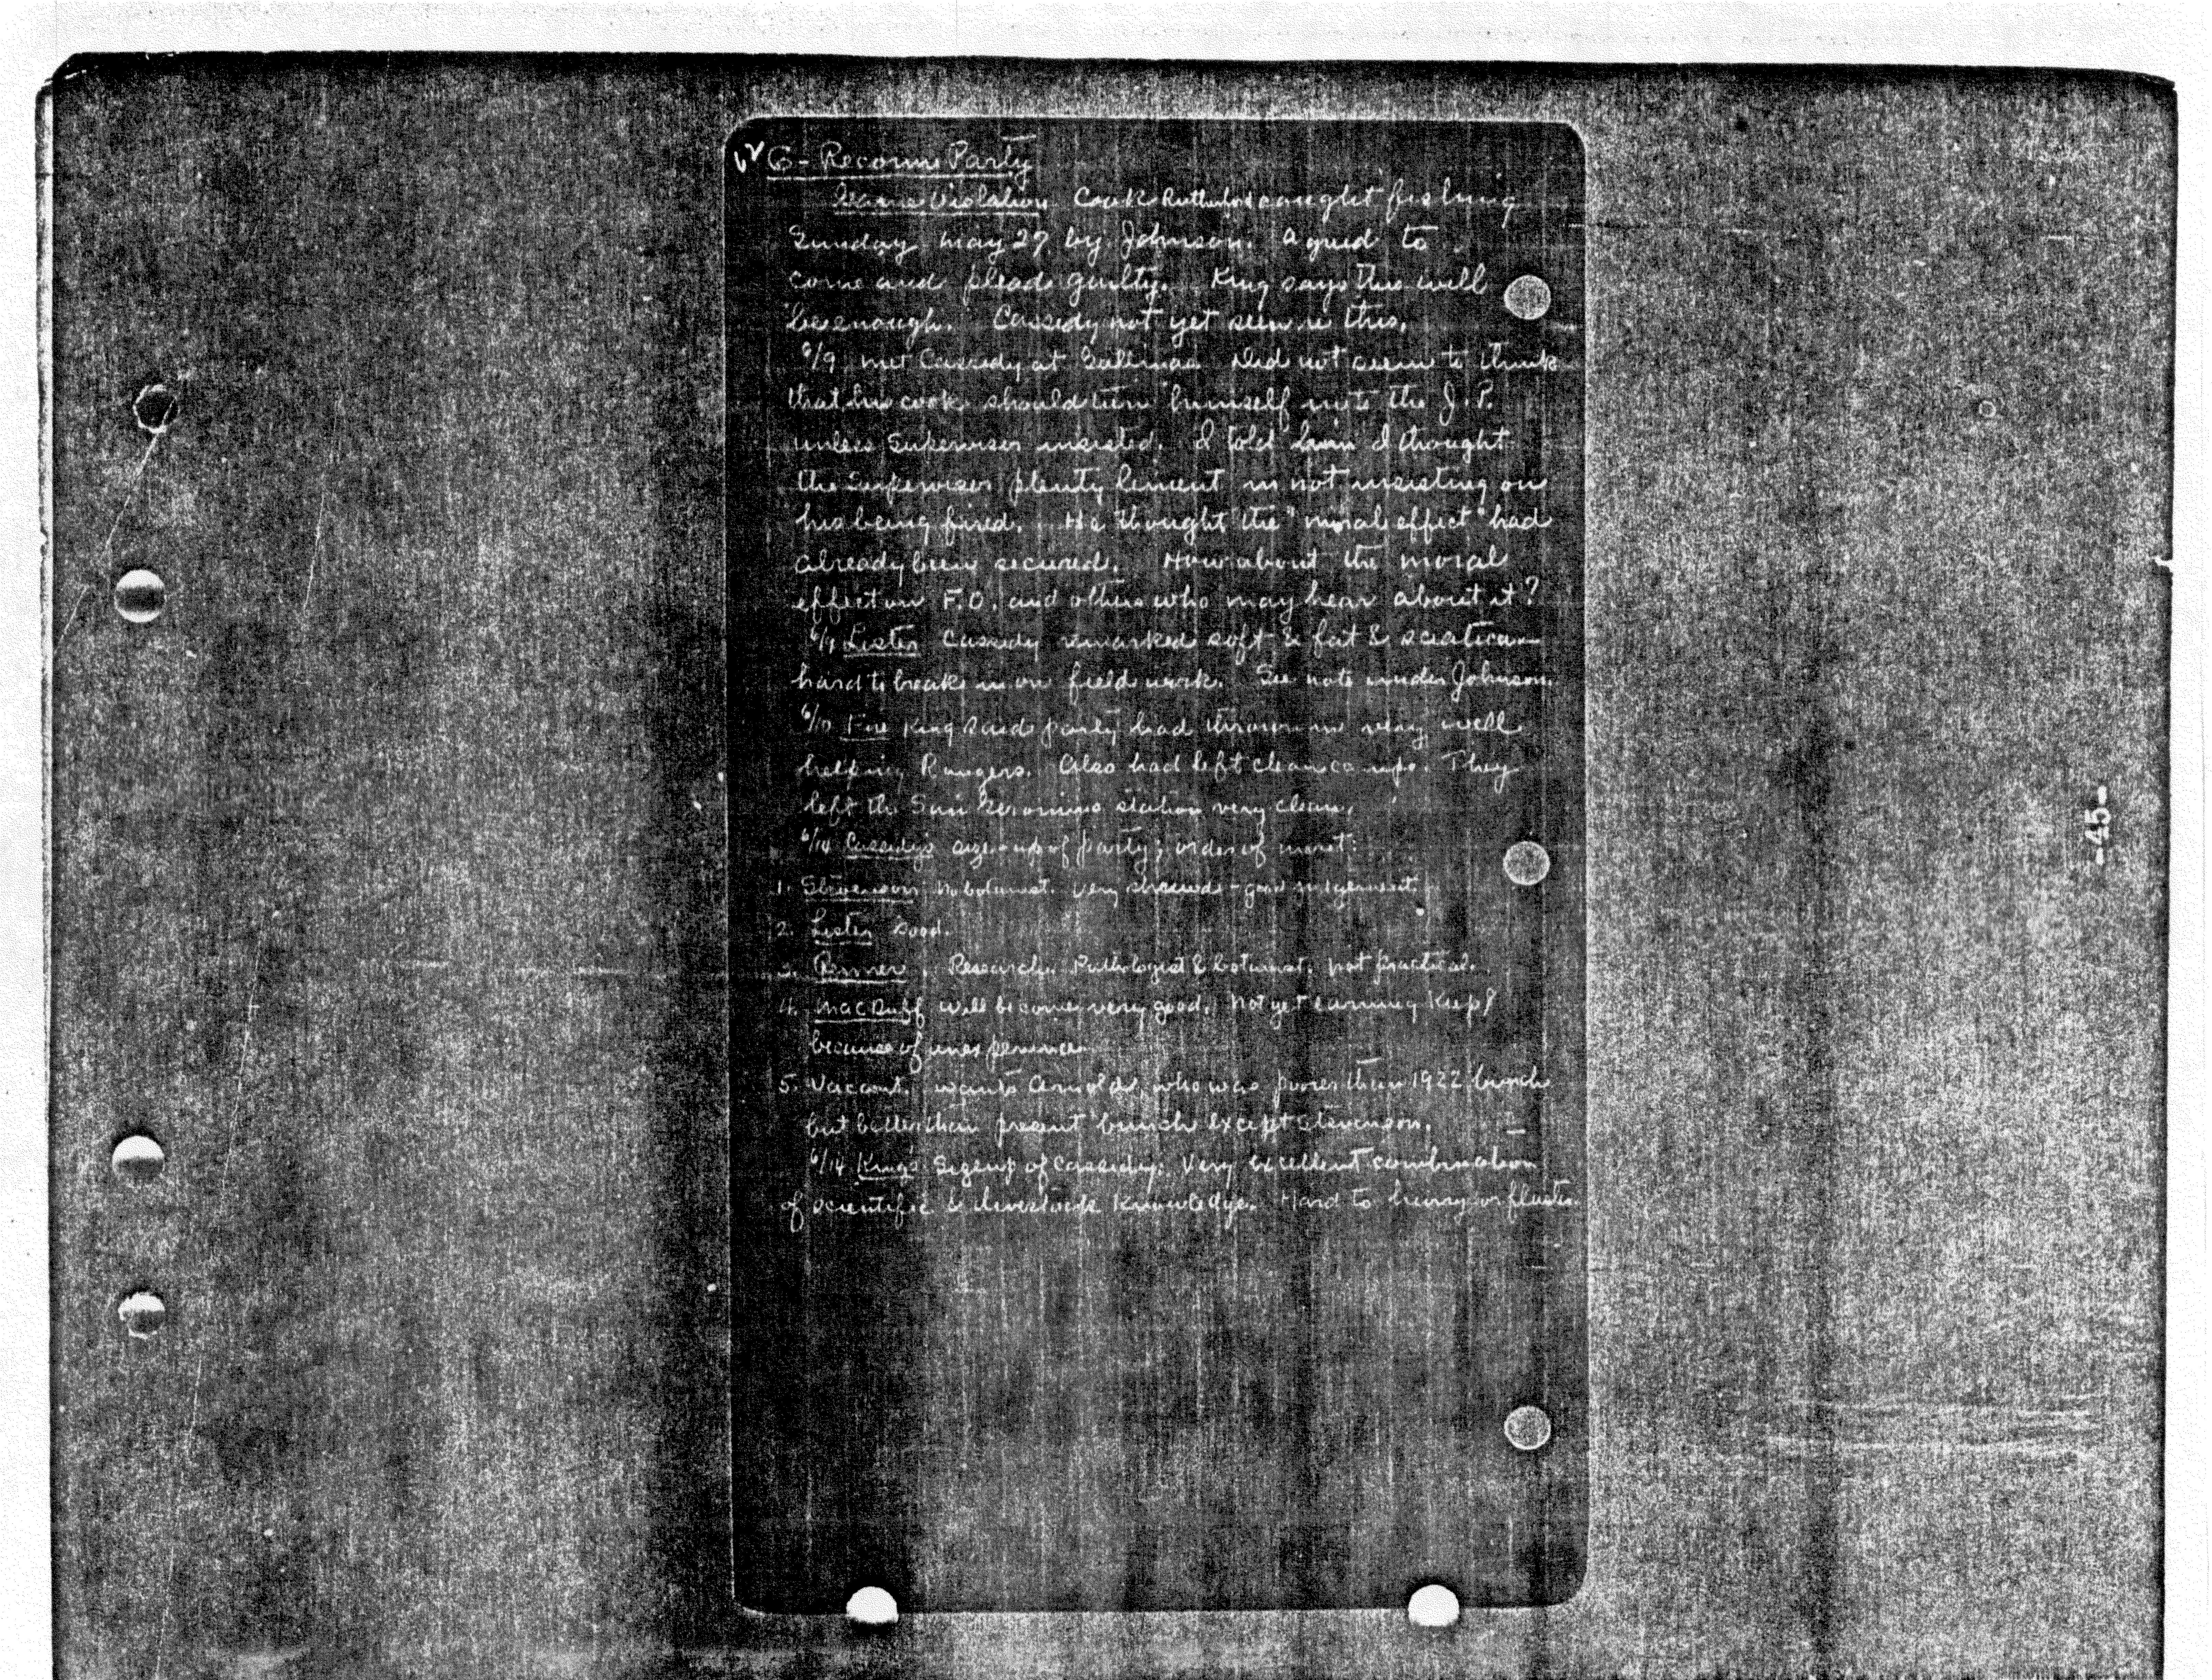 G - Reconn. Party
Game Violation Cook Rutherford caught fishing
Sunday May 27 by Johnson. Agreed to
come and plead guilty. King says this will
be enough. Cassidy not yet seen re this.
6/9 met Cassidy at Gallinas. Did not seem to think
that his cook should turn himself in to the J.P.
unless Supervisor insisted. I told him I thought
the Supervisor plenty lenient in not insisting on
his being fired. He thought the "moral effect" had
already been secured. How about the moral
effect on F.O. and others who may hear about it?
6/9 Lister Cassidy remarked soft & fat & sciatica—
hard to break in on field work. See note under Johnson.
6/10 Fire King said party had thrown in very well
helping Rangers. Also had left clean camps. They
left the San Geronimo station very clean.
6/14 Cassidy's size-up of party; order of merit:
1. Stevenson No botanist. Very shrewd - good judgement.
2. Lister Good.
3. Research. Pathologist & botanist. Not practical.
4. MacDuff will become very good. Not yet earning keep
because of inexperience.
5. Vacant. wants Arnold, who was poorer than 1922 bunch
but better than present bunch except Stevenson.
6/14 King's Sizeup of Cassidy: Very excellent combination
of scientific & livestock knowledge. Hard to hurry or fluster.
-45-